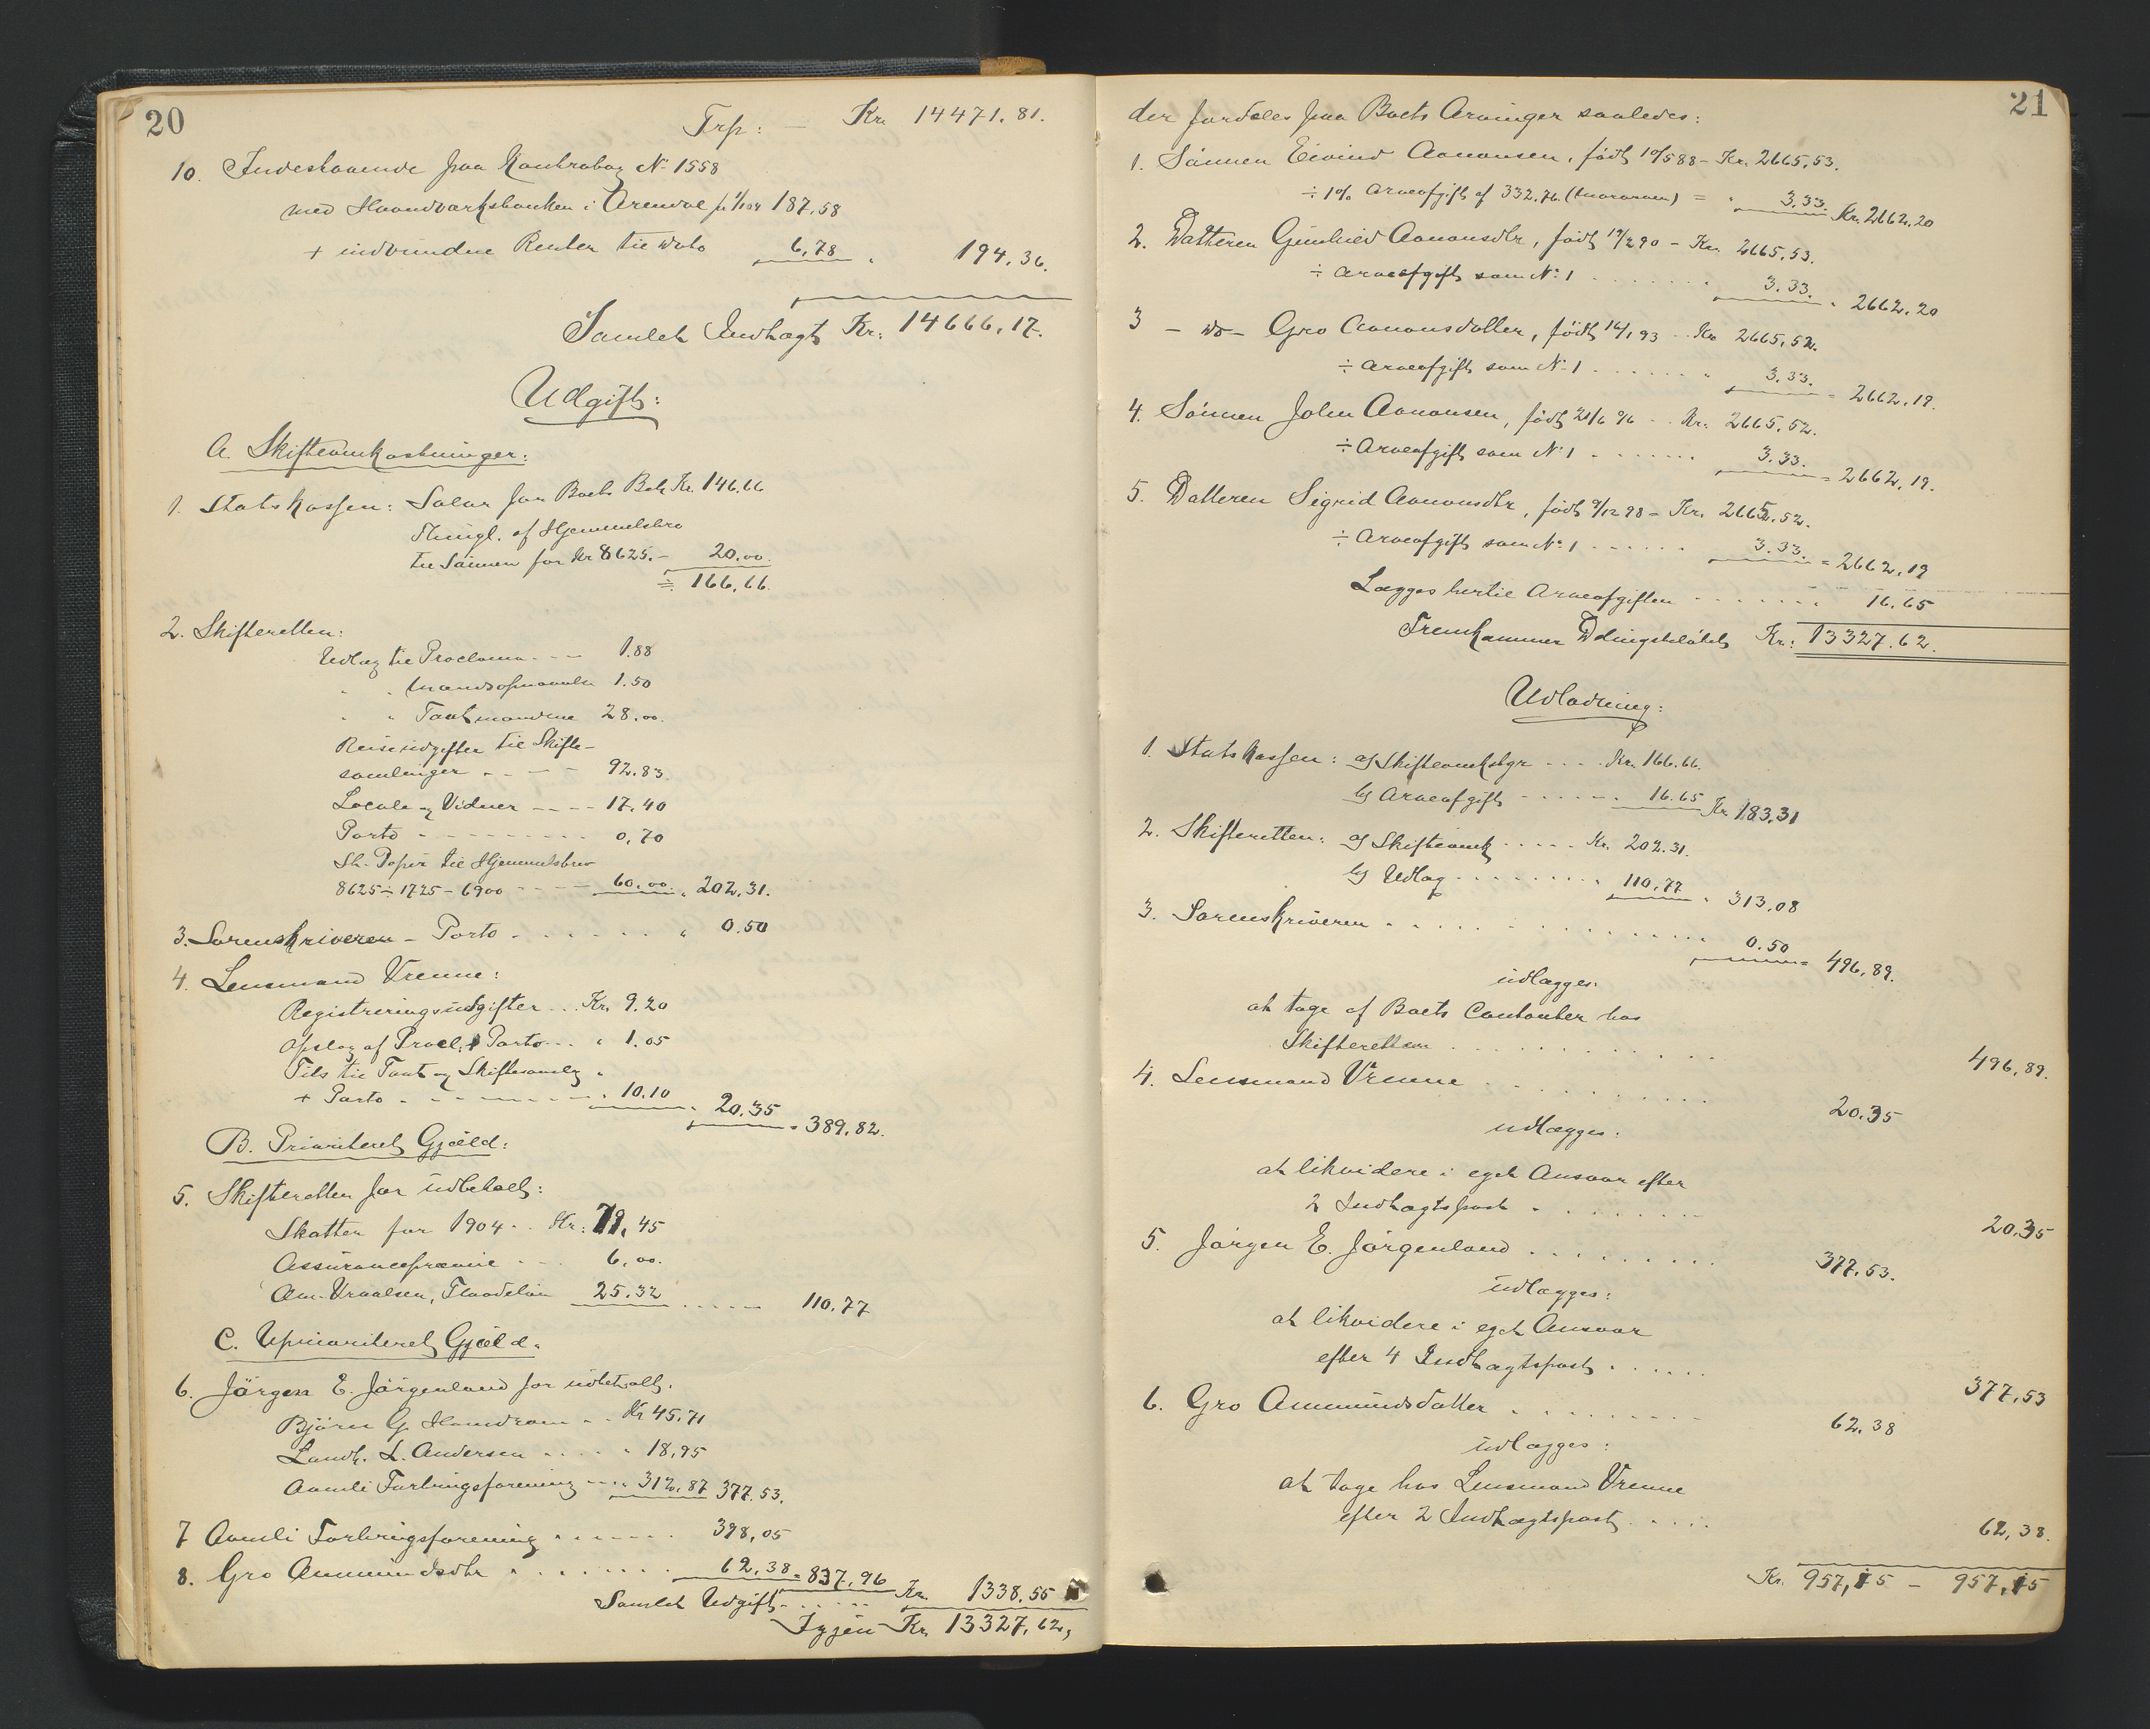 20
Trp: — Kr. 14471.81.
10. Indestaaende paa Kontrabog No 1558
med Haandværksbanken i Arendal pr 1/1 04 187,58
+ indvundne Renter til Dato 6,78 " 194,36.
Samlet Indtægt Kr. 14666,17.
Udgift:
A. Skifteomkostninger:
1. Statskassen: Salær for Boets Beh Kr. 146,66
Thingl. af Hjemmelsbrev
til Sönnen for Kr 8625.- 20.00
= 166,66.
2. Skifteretten:
Udlæg til Proclama - - - 1.88
" " Mandsopnævnelse 1.50
" " Taxtmændene 28.00.
Reiseudgifter til Skifte-
samlinger - - - - 92.83.
Locale og Vidner - - - - 17.40
Porto - - - - - - - - - 0,70
St. Papir til Hjemmelsbrev
8625 ÷ 1725 - 6900 - - - - 60.00. " 202,31.
3. Sorenskriveren - Porto - - - - - - " 0.50
4. Lensmand Vrenne:
Registreringsudgifter - - Kr. 9.20
Opslag af Procl. & Porto - - " 1.05
Tils til Taxt og Skiftesamlg "
+ Porto - - - - - - - - - " 10.10 " 20.35 = 389,82.
B. Prioriteret Gjæld:
5. Skifteretten for udbetalt:
Skatter for 1904 - - Kr: 79,45
Assurancepræmie - - - 6,00.
Am. Vraalsen, Flaadelön 25.32 - - - - - 110.77
C. Uprioriteret Gjæld.
6. Jörgen E. Jörgenland for udbetalt.
Björn G. Hamdram - - Kr 45.71
Landh. L. Andersen - - - - " 18,95
Aamli Forbrugsforening - - - " 312,87 377.53.
7 Aamli Forbrugsforening - - - - - - 398,05
8. Gro Aanmundsdtr - - - - - - - 62,38 = 837,96
Samlet Udgift - - - - - - Kr. 1338.55
Igjen Kr. 13327,62,
21
der fordeles paa Boets Arvinger saaledes:
1. Sönnen Eivind Aanonsen, født 10/5 88 - Kr. 2665,53.
÷ 1 % Arveafgift af 332.76 (Morarven) = " 3.33. Kr. 2662,20
2. Datteren Gunhild Aanonsdtr, født 19/2 90 - Kr. 2665,53.
÷ Arveafgift som No 1 - - - - - - - " 3.33. " 2662,20
3 - do - Gro Aanonsdatter, födt 16/1 93 - - Kr. 2665,52.
÷ Arveafgift som No 1 - - - - - - " 3.33. = 2662,19.
4. Sönnen John Aanonsen, födt 21/6 96 - - Kr. 2665,52.
÷ Arveafgift som No 1 - - - - - - - 3.33. = 2662,19.
5. Datteren Sigrid Aanonsdtr, født 9/12 98 - Kr. 2665,52.
÷ Arveafgift som No 1 - - - - - - 3.33. = 2662,19
Lægges hertil Arveafgiften - - - - - - - 16.65
Fremkommer Delingsbelöbet Kr: 13327.62.
Udlodning:
1. Statskassen: a) Skifteomkstgr - - - - Kr. 166.66.
b) Arveafgift - - - - - - 16.65 Kr 183,31
2. Skifteretten: a) Skifteomk - - - - - Kr. 202.31.
b) Udlæg - - - - - - - - " 110,77 " 313,08
3. Sorenskriveren - - - - - - - - - - - - - 0.50 = 496,89.
udlægges:
at tage af Boets Contanter hos
Skifteretten - - - - - - - - - - - - 496,89.
4. Lensmand Vrenne - - - - - - - - - 20.35
udlægges:
at likvidere i eget Ansvar efter
2 Indtægtspost - - - - - - - - 20.35
5. Jörgen E. Jörgenland - - - - - - - - 377.53.
udlægges:
at likvidere i eget Ansvar
efter 4 Indtægtspost - - - - - - 377,53
6. Gro Aanmundsdatter - - - - - - - - - 62,38
udlægges:
at tage hos Lensmand Vrenne
efter 2 Indtægtspost - - - - - 62,38.
Kr. 957,15 - 957,15